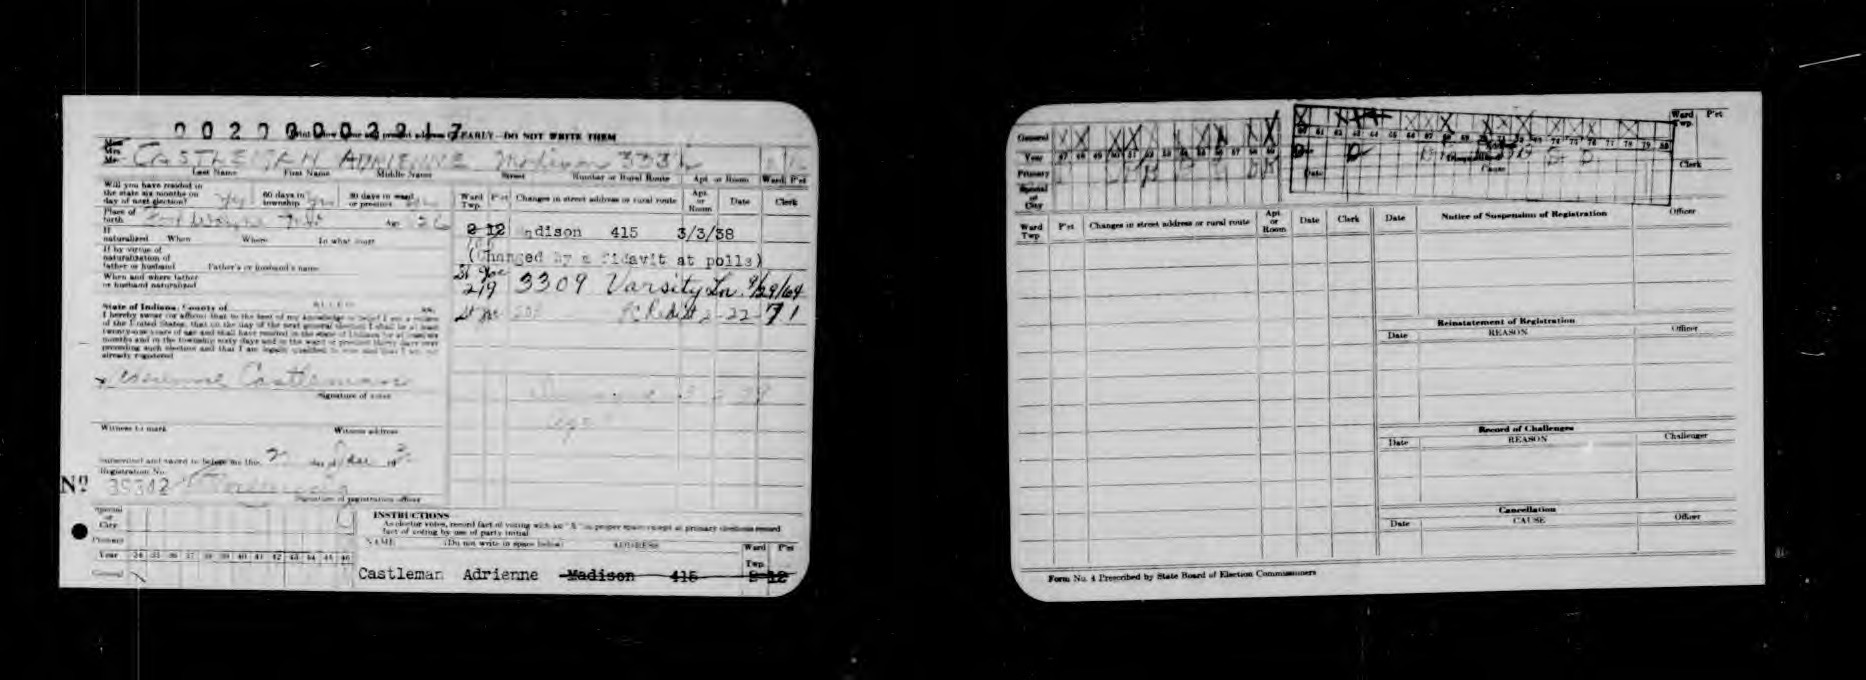 0020000002217
EARLY—DO NOT WRITE THEM
CASTLEMAN ADRIENNE Madison 333
Last Name First Name Middle Name Street Number or Rural Route Apt. or Room Ward P'ct
Will you have resided in
the state six months on
day of next election? yes 60 days in township yes 30 days in ward or precinct
Place of
birth Fort Wayne Ind Age 26
If
naturalized When Where In what court
If by virtue of
naturalization of
father or husband Father's or husband's name
When and where father
or husband naturalized
State of Indiana, County of ALLEN ss.
I hereby swear (or affirm) that to the best of my knowledge or belief I am a citizen
of the United States, that on the day of the next general election I shall be at least
twenty-one years of age and shall have resided in the state of Indiana for at least six
months and in the township sixty days and in the ward or precinct thirty days next
preceding such election and that I am legally qualified to vote and that I am not
already registered
x Adrienne Castleman
Signature of voter
Witness to mark Witness address
Subscribed and sworn to before me this day of 19
Registration No.
No 35342
Signature of registration officer
Ward Twp. P'ct Changes in street address or rural route Apt. or Room Date Clerk
2 12 dison 415 3/3/38
(Changed by affidavit at polls)
St Joe
219 3309 Varsity Ln. 9/29/64
St Joe 2-22-71
Special
or
City
Primary
Year 34 35 36 37 38 39 40 41 42 43 44 45 46
General
INSTRUCTIONS
As elector votes, record fact of voting with an "X" in proper space except at primary elections record
fact of voting by use of party initial
NAME (Do not write in space below) ADDRESS Ward Twp. P'ct
Castleman Adrienne Madison 415 2 12
General
Year 47 48 49 50 51 52 53 54 55 56 57 58 59
Primary
Special
or
City
60 61 62 63 64 65 66 67 68 69 70 71 72 73 74 75 76 77 78 79 80
Date Cause
Ward Twp. P'ct
Clerk
Ward Twp P'ct Changes in street address or rural route Apt. or Room Date Clerk
Date Notice of Suspension of Registration Officer
Reinstatement of Registration
Date REASON Officer
Record of Challenges
Date REASON Challenger
Cancellation
Date CAUSE Officer
Form No. 4 Prescribed by State Board of Election Commissioners